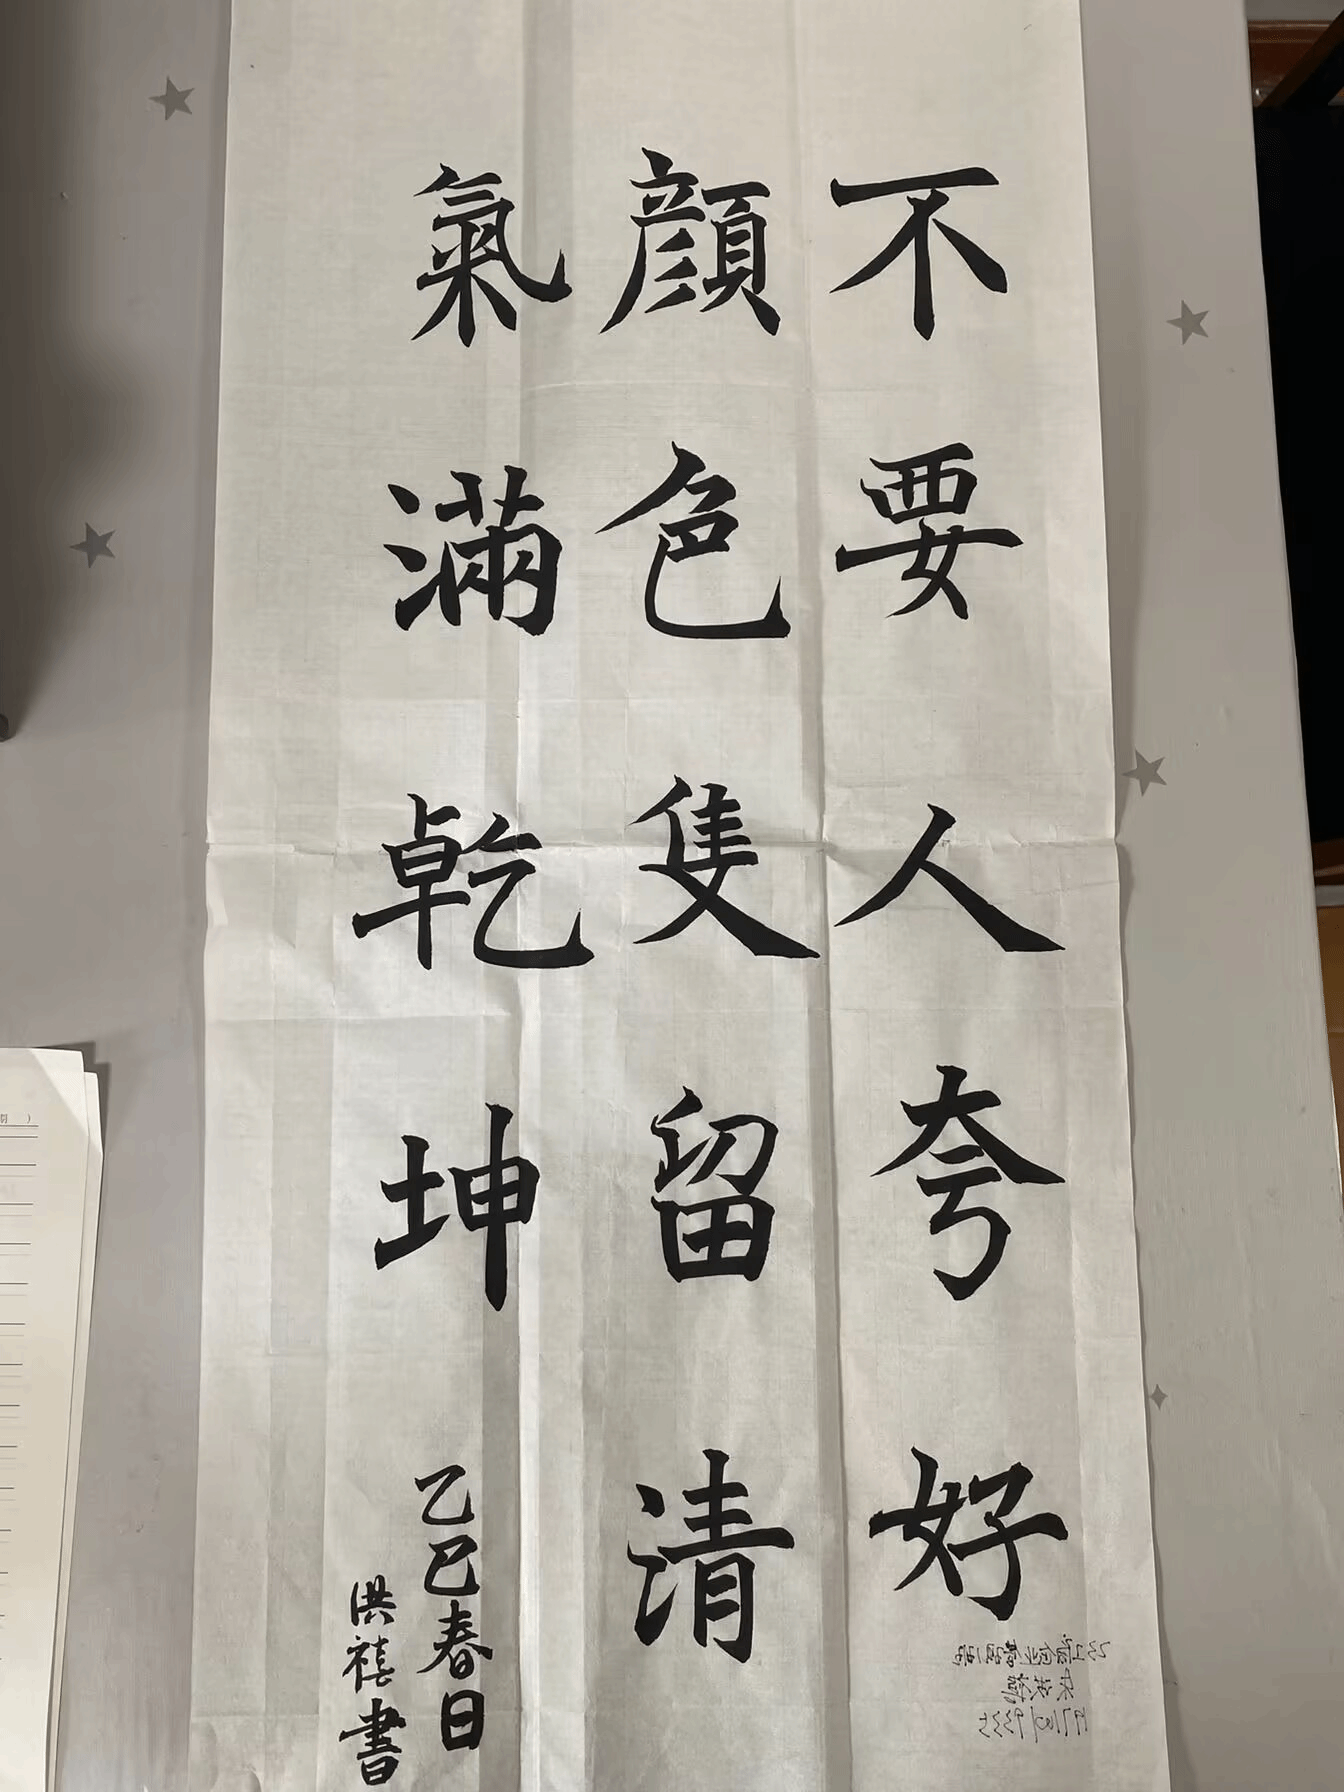 不要人夸好
顔色隻留清
氣滿乾坤
乙巳春日
洪禧書